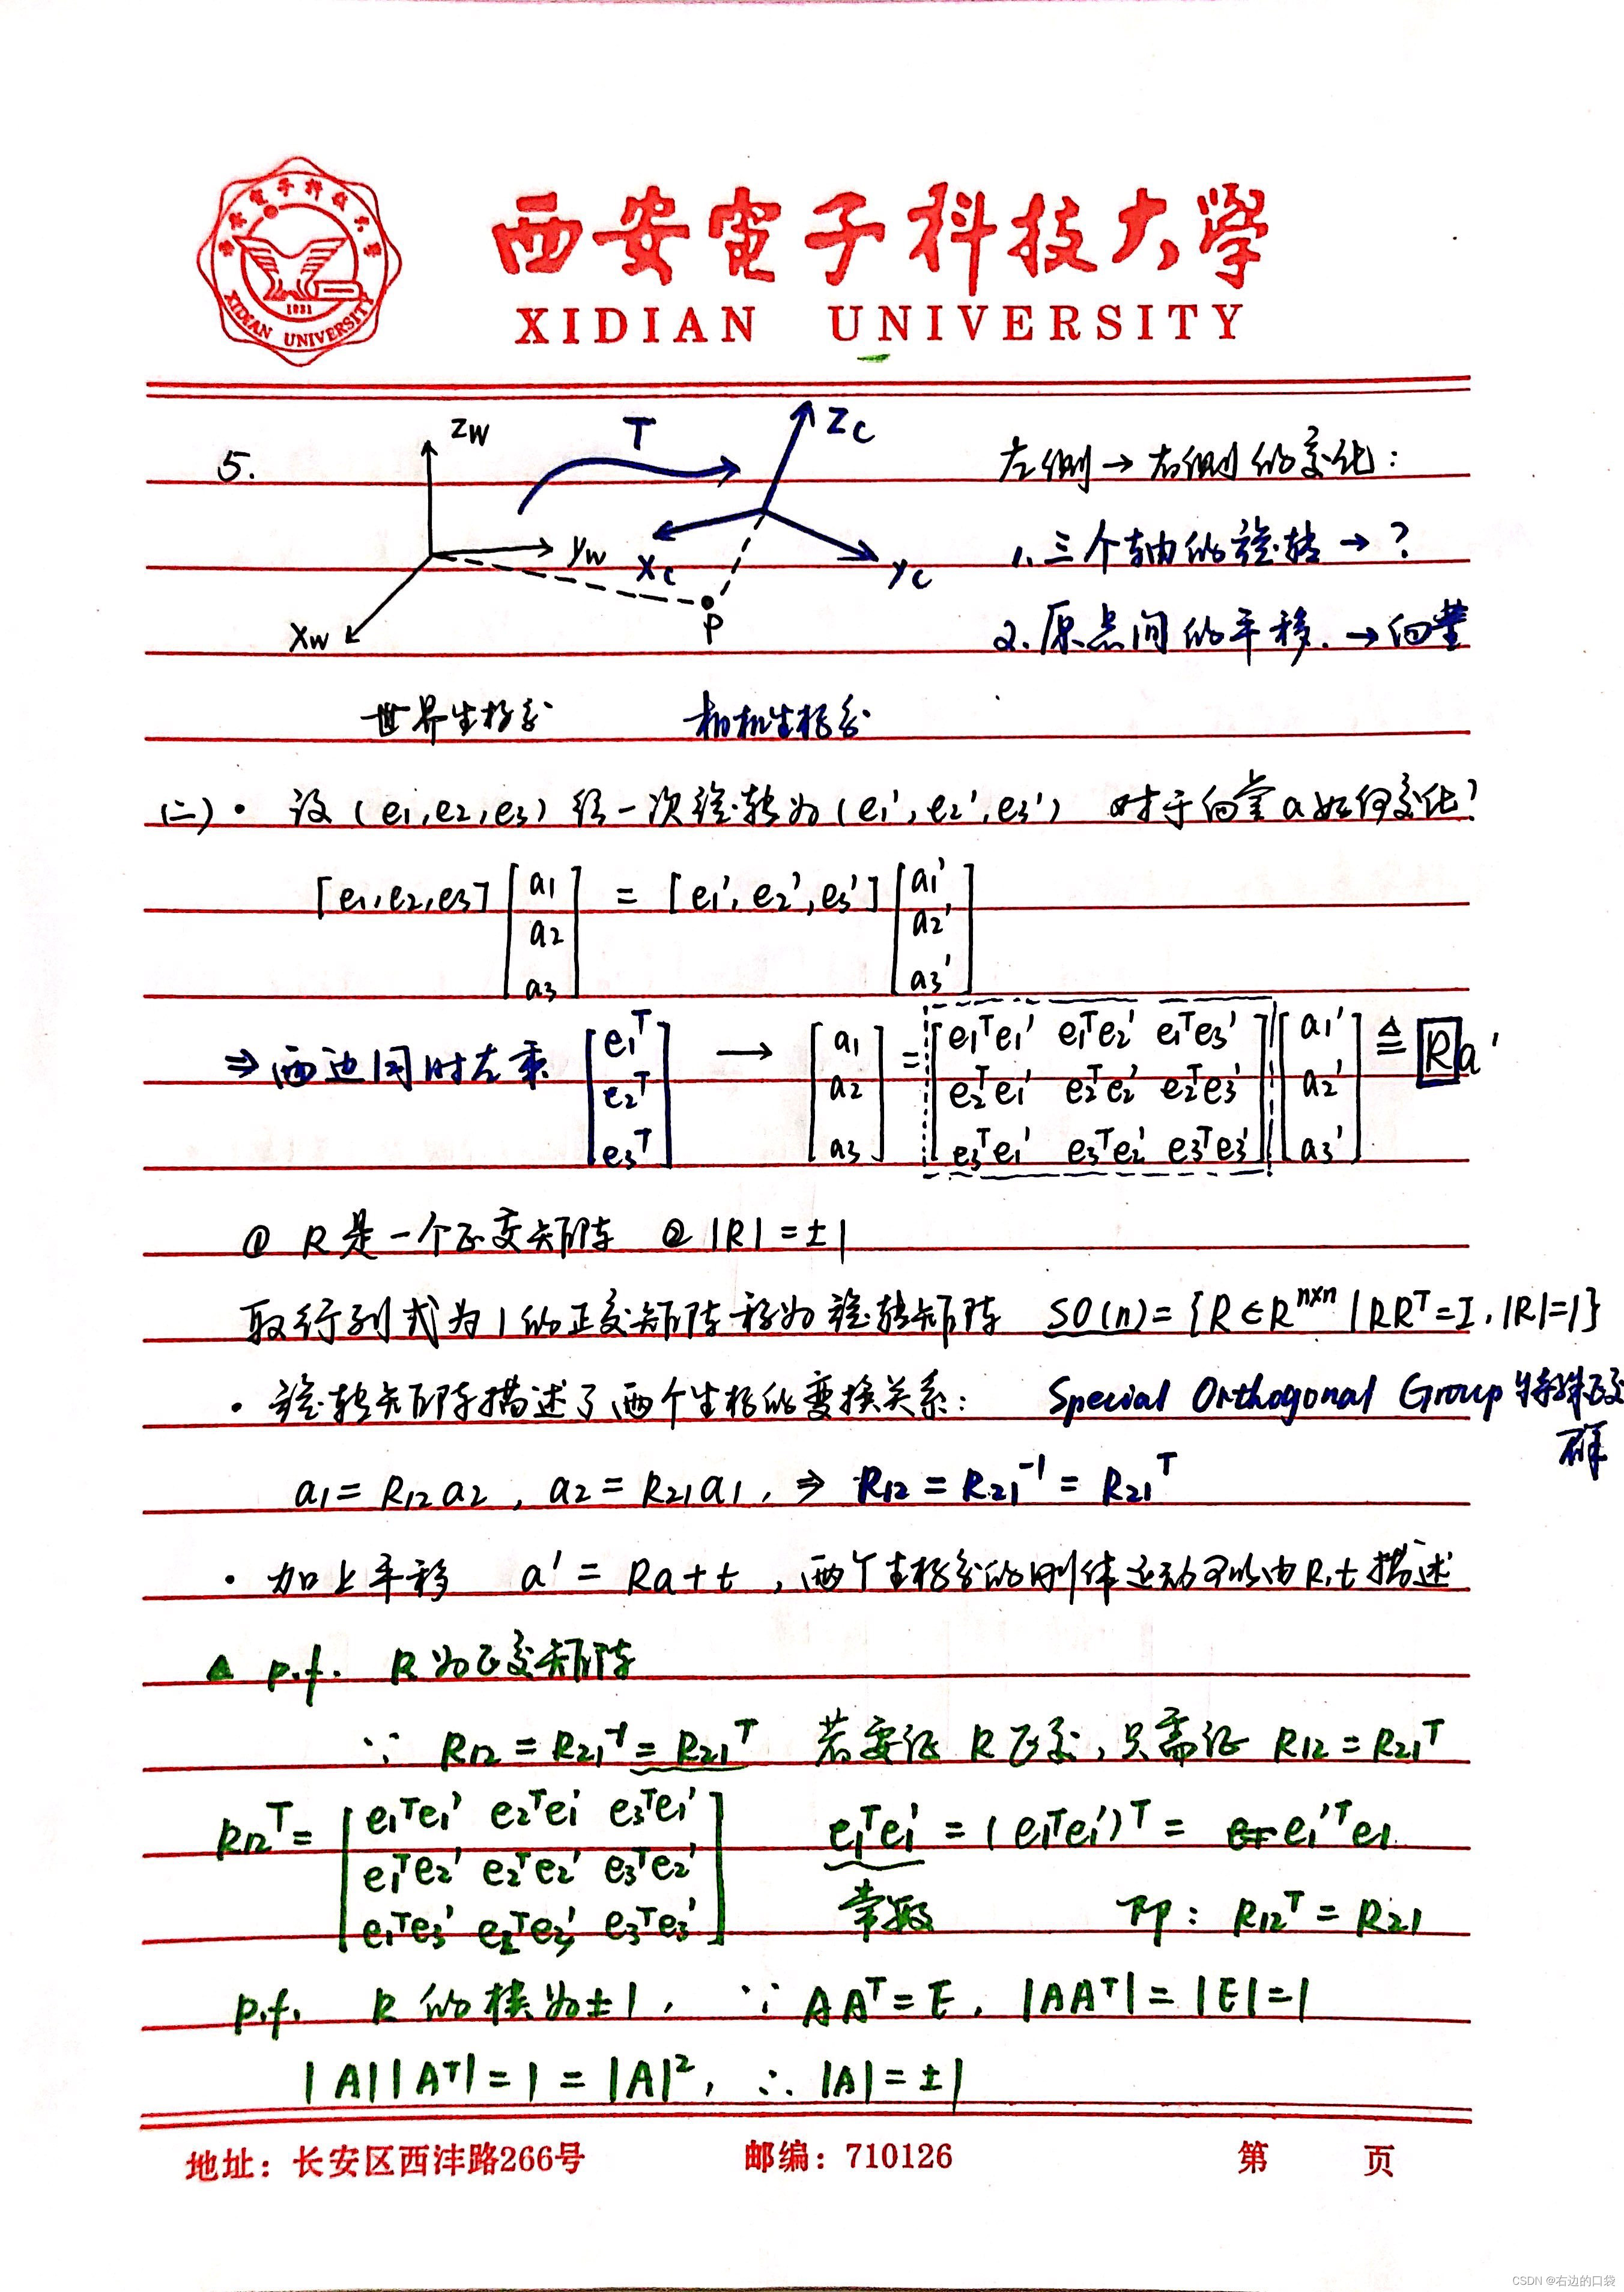 西安电子科技大学
XIDIAN UNIVERSITY
1931
XIDIAN UNIVERSITY
5.
zw
T
zc
左侧→右侧的变化:
yw
xc
yc
1.三个轴的旋转→?
xw
P
2.原点间的平移.→向量
世界坐标系 相机坐标系
(二)· 设(e1,e2,e3)经一次旋转为(e1',e2',e3') 对于向量a如何变化?
[e1,e2,e3] [a1 a2 a3] = [e1',e2',e3'] [a1' a2' a3']
⇒两边同时左乘 [e1ᵀ e2ᵀ e3ᵀ] → [a1 a2 a3] = [e1ᵀe1' e1ᵀe2' e1ᵀe3' e2ᵀe1' e2ᵀe2' e2ᵀe3' e3ᵀe1' e3ᵀe2' e3ᵀe3'] [a1' a2' a3'] ≜ Ra'
① R是一个正交矩阵 ② |R|=±1
取行列式为1的正交矩阵称为旋转矩阵 SO(n)={R∈Rⁿˣⁿ|RRᵀ=I,|R|=1}
· 旋转矩阵描述了两个坐标的变换关系: Special Orthogonal Group 特殊正交
群
a1=R12a2, a2=R21a1, ⇒ R12=R21⁻¹=R21ᵀ
· 加上平移 a'=Ra+t,两个坐标系的刚体运动可以由R,t描述
△ p.f. R为正交矩阵
∵ R12=R21⁻¹=R21ᵀ 若要证R正交,只需证R12=R21ᵀ
R12ᵀ= [e1ᵀe1' e2ᵀe1' e3ᵀe1' e1ᵀe2' e2ᵀe2' e3ᵀe2' e1ᵀe3' e2ᵀe3' e3ᵀe3'] e1ᵀe1'=(e1ᵀe1')ᵀ= e1'ᵀe1
常数 即: R12ᵀ=R21
p.f. R的模为±1, ∵ AAᵀ=E, |AAᵀ|=|E|=1
|A||Aᵀ|=1=|A|², ∴ |A|=±1
地址:长安区西沣路266号 邮编:710126 第 页
CSDN @右边的口袋